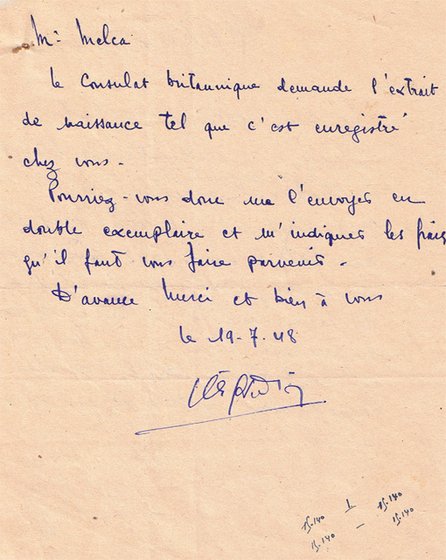 Mr Melca
Le Consulat britannique demande l'extrait
de naissance tel que c'est enregistré
chez vous -
Pourriez-vous donc me l'envoyer en
double exemplaire et m'indiquer les frais
qu'il faut vous faire parvenir -
D'avance Merci et bien à vous
le 19-7.48
15.140 1 15.140
15.140 — 15.140